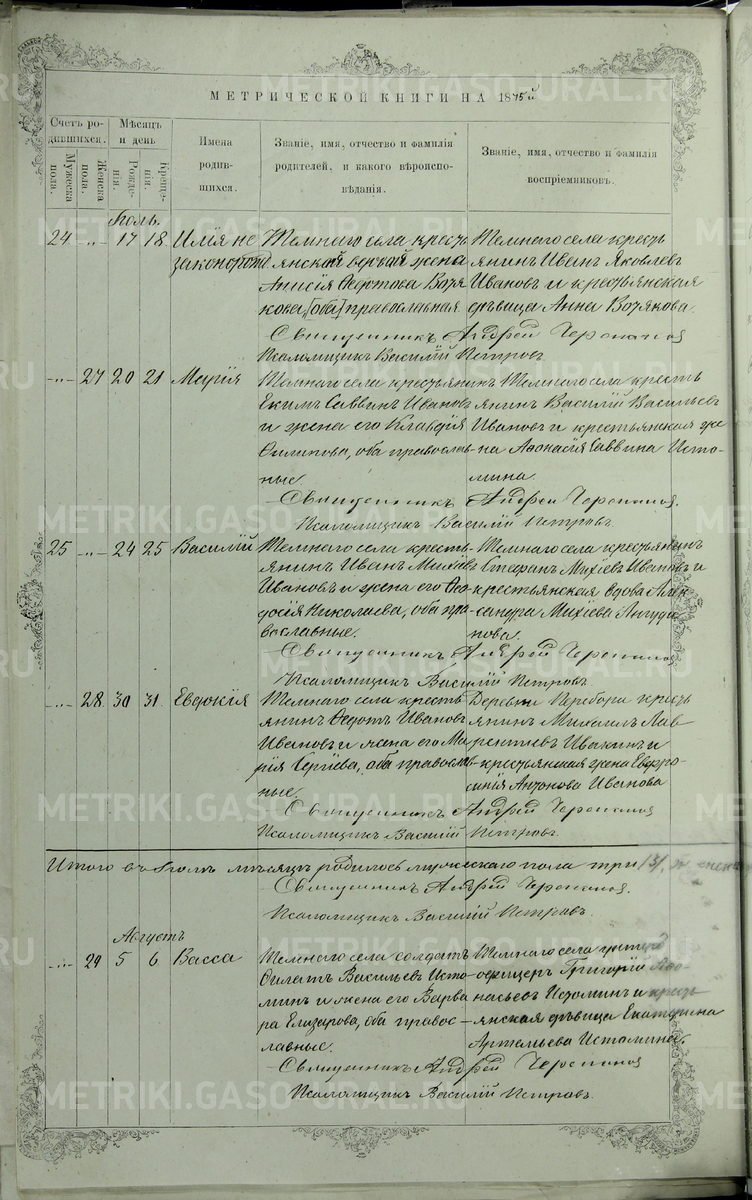 МЕТРИЧЕСКОЙ КНИГИ НА 1875й
Счетъ родившихся.
Мѣсяцъ и день
Имена родившихся.
Званіе, имя, отчество и фамилія родителей, и какого вѣроисповѣданія.
Званіе, имя, отчество и фамилія воспріемниковъ.
Мужеска пола.
Женска пола.
Рожденія.
Крещенія.
Іюль.
24 „ 17 18 Илія не
законорожд
Темнаго села кресть
янской вдовы жена
Анисія Ѳедотова Вотя
кова, [оба] православная
Темнаго села кресть
янинъ Иванъ Яковлевъ
Ивановъ и крестьянская
дѣвица Анна Вотякова.
Священникъ Андрей Черепановъ
Псаломщикъ Василій Петровъ
„ 27 20 21 Марія
Темнаго села крестьянинъ
Екимъ Саввинъ Ивановъ
и жена его Клавдія
Филипова, оба православ-
ные.
Темнаго села кресть
янинъ Василій Васильевъ
Ивановъ и крестьянская же
на Аѳонасія Саввина Исто-
мина.
Священникъ Андрей Черепановъ.
Псаломщикъ Василій Петровъ
25 „ 24 25 Василій
Темнаго села кресть-
янинъ Иванъ Михѣевъ
Ивановъ и жена его Ѳео-
досія Николаева, оба пра-
вославные.
Темнаго села крестьянинъ
Стефанъ Михѣевъ Ивановъ и
крестьянская вдова Алек
сандра Михѣева
нова.
Священникъ Андрей Черепановъ
Псаломщикъ Василій Петровъ
„ 28 30 31 Евдокія
Темнаго села кресть
янинъ Ѳедотъ Ивановъ
Ивановъ и жена его Ма
рія Сергіева, оба православ-
ные.
Деревни Перебора кресть
янинъ Михаилъ Лав
рентіевъ Ивакинъ и
крестьянская жена Евфро-
синія Антонова Иванова
Священникъ Андрей Черепановъ
Псаломщикъ Василій Петровъ.
Итого въ Іюлѣ мѣсяцѣ родилось мужескаго пола три /3/,
Священникъ Андрей Черепановъ.
Псаломщикъ Василій Петровъ.
Августъ
„ 29 5 6 Васса
Темнаго села солдатъ
Филатъ Васильевъ Исто-
минъ и жена его Варва
ра Елизарова, оба правос-
лавные.
Темнаго села унтеръ
офицеръ Григорій Аѳо-
насьевъ Истоминъ и кресть
янская дѣвица Екатерина
Артемьева Истомина.
Священникъ Андрей Черепановъ
Псаломщикъ Василій Петровъ.
METRIKI.GASO-URAL.RU